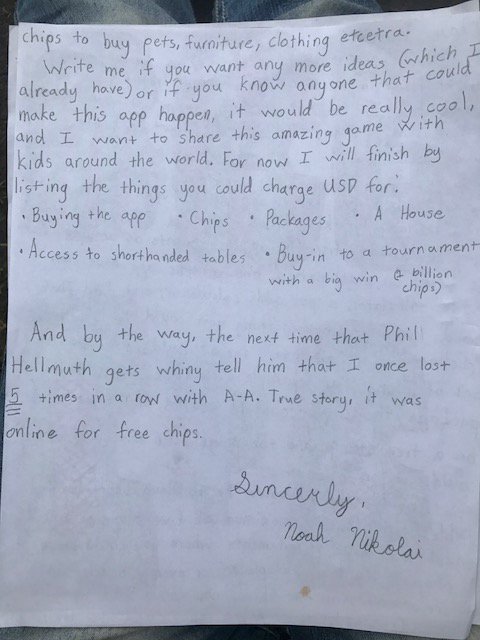 chips to buy pets, furniture, clothing etcetra.
Write me if you want any more ideas (which I
already have) or if you know anyone that could
make this app happen, it would be really cool,
and I want to share this amazing game with
kids around the world. For now I will finish by
listing the things you could charge USD for:
• Buying the app • Chips • Packages • A House
• Access to shorthanded tables • Buy-in to a tournament
with a big win (2 billion
chips)
And by the way, the next time that Phil
Hellmuth gets whiny tell him that I once lost
5 times in a row with A-A. True story, it was
online for free chips.
Sincerly,
Noah Nikolai